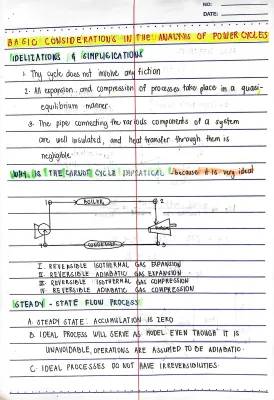 NO:
DATE:
BASIC CONSIDERATIONS IN THE ANALYSIS OF POWER CYCLES
IDELIZATIONS & SIMPLIGICATIONS
1. Thy cycle does not involve any fiction
2. All expansion and compression of processes take place in a quasi-
equilibrium manner.
3. The pipes connecting the various components of a system
are well insulated, and heat transfer through them is
negligible.
WHY IS THE CARNOT CYCLE IMPRATICAL because it is very ideal
BOILER
2
CONDENSER
3
I. REVERSIBLE ISOTHERMAL GAS EXPANSION
II. REVERSIBLE ADIABATIC GAS EXPANSION
III. REVERSIBLE ISOTHERMAL GAS COMPRESSION
IV. REVERSIBLE ADIABATIC GAS COMPRESSION
STEADY - STATE FLOW PROCESS
A. STEADY STATE: ACCUMULATION IS ZERO
B. IDEAL PROCESS WILL SERVE AS MODEL EVEN THOUGH IT IS
UNAVOIDABLE, OPERATIONS ARE ASSUMED TO BE ADIABATIC.
C. IDEAL PROCESSES DO NOT HAVE IRREVERSIBILITIES.